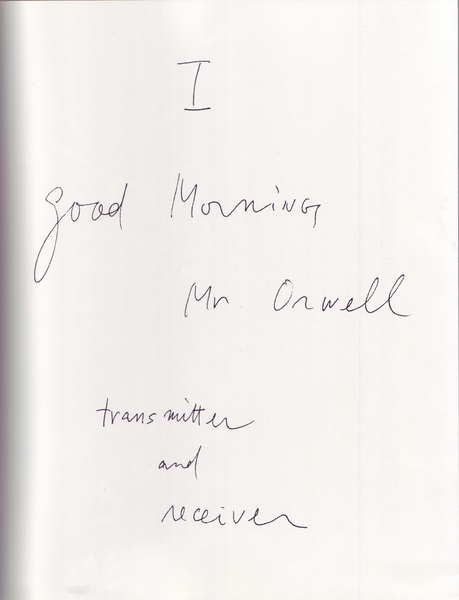 I
good Morning
Mr Orwell
transmitter
and
receiver